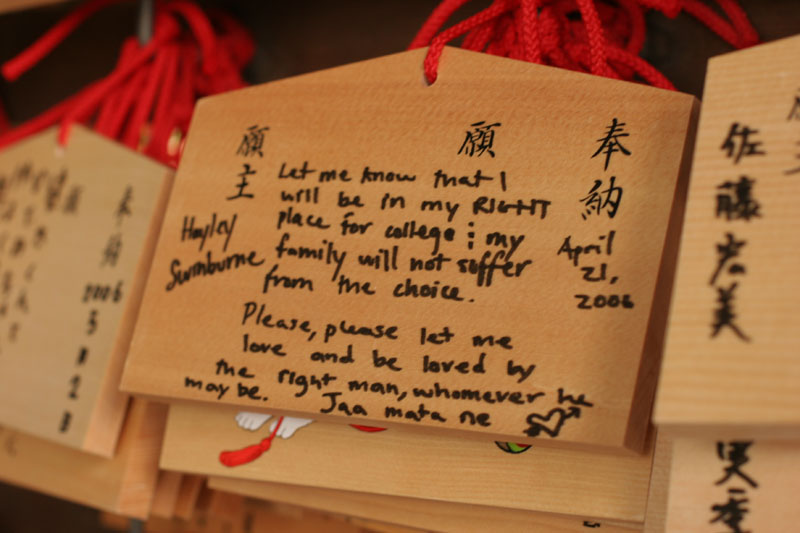 奉納
願
願主
Let me know that I
will be in my RIGHT
place for college ; my
family will not suffer
from the choice.
Please, please let me
love and be loved by
the right man, whomever he
may be. Jaa mata ne
Hayley
Swinburne
April
21,
2006
佐藤宏美
奉納
2006
5
2